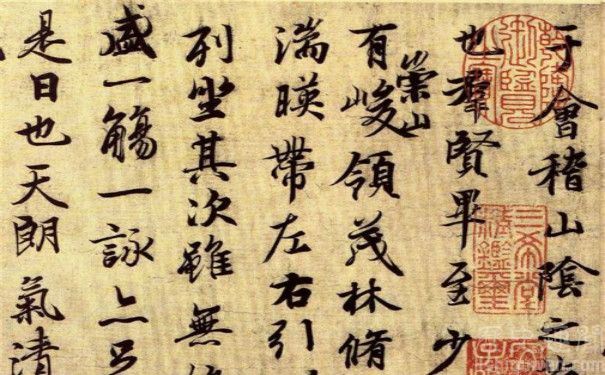 于會稽山陰之
也羣賢畢至少
有崇山峻領茂林脩
湍暎帶左右引
列坐其次雖無
盛一觴一詠亦
是日也天朗氣清
三希堂精鑑璽